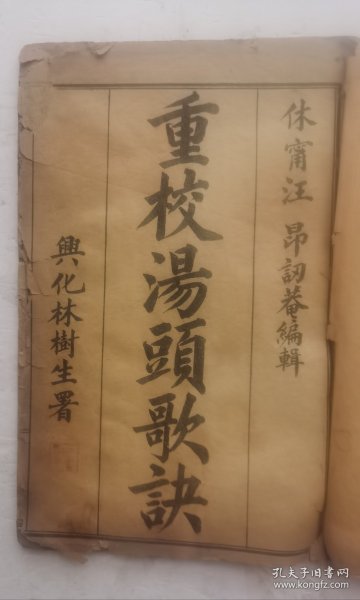 休甯汪 昂訒菴編輯
重校湯頭歌訣
興化林樹生署
孔夫子旧书网
www.kongfz.com